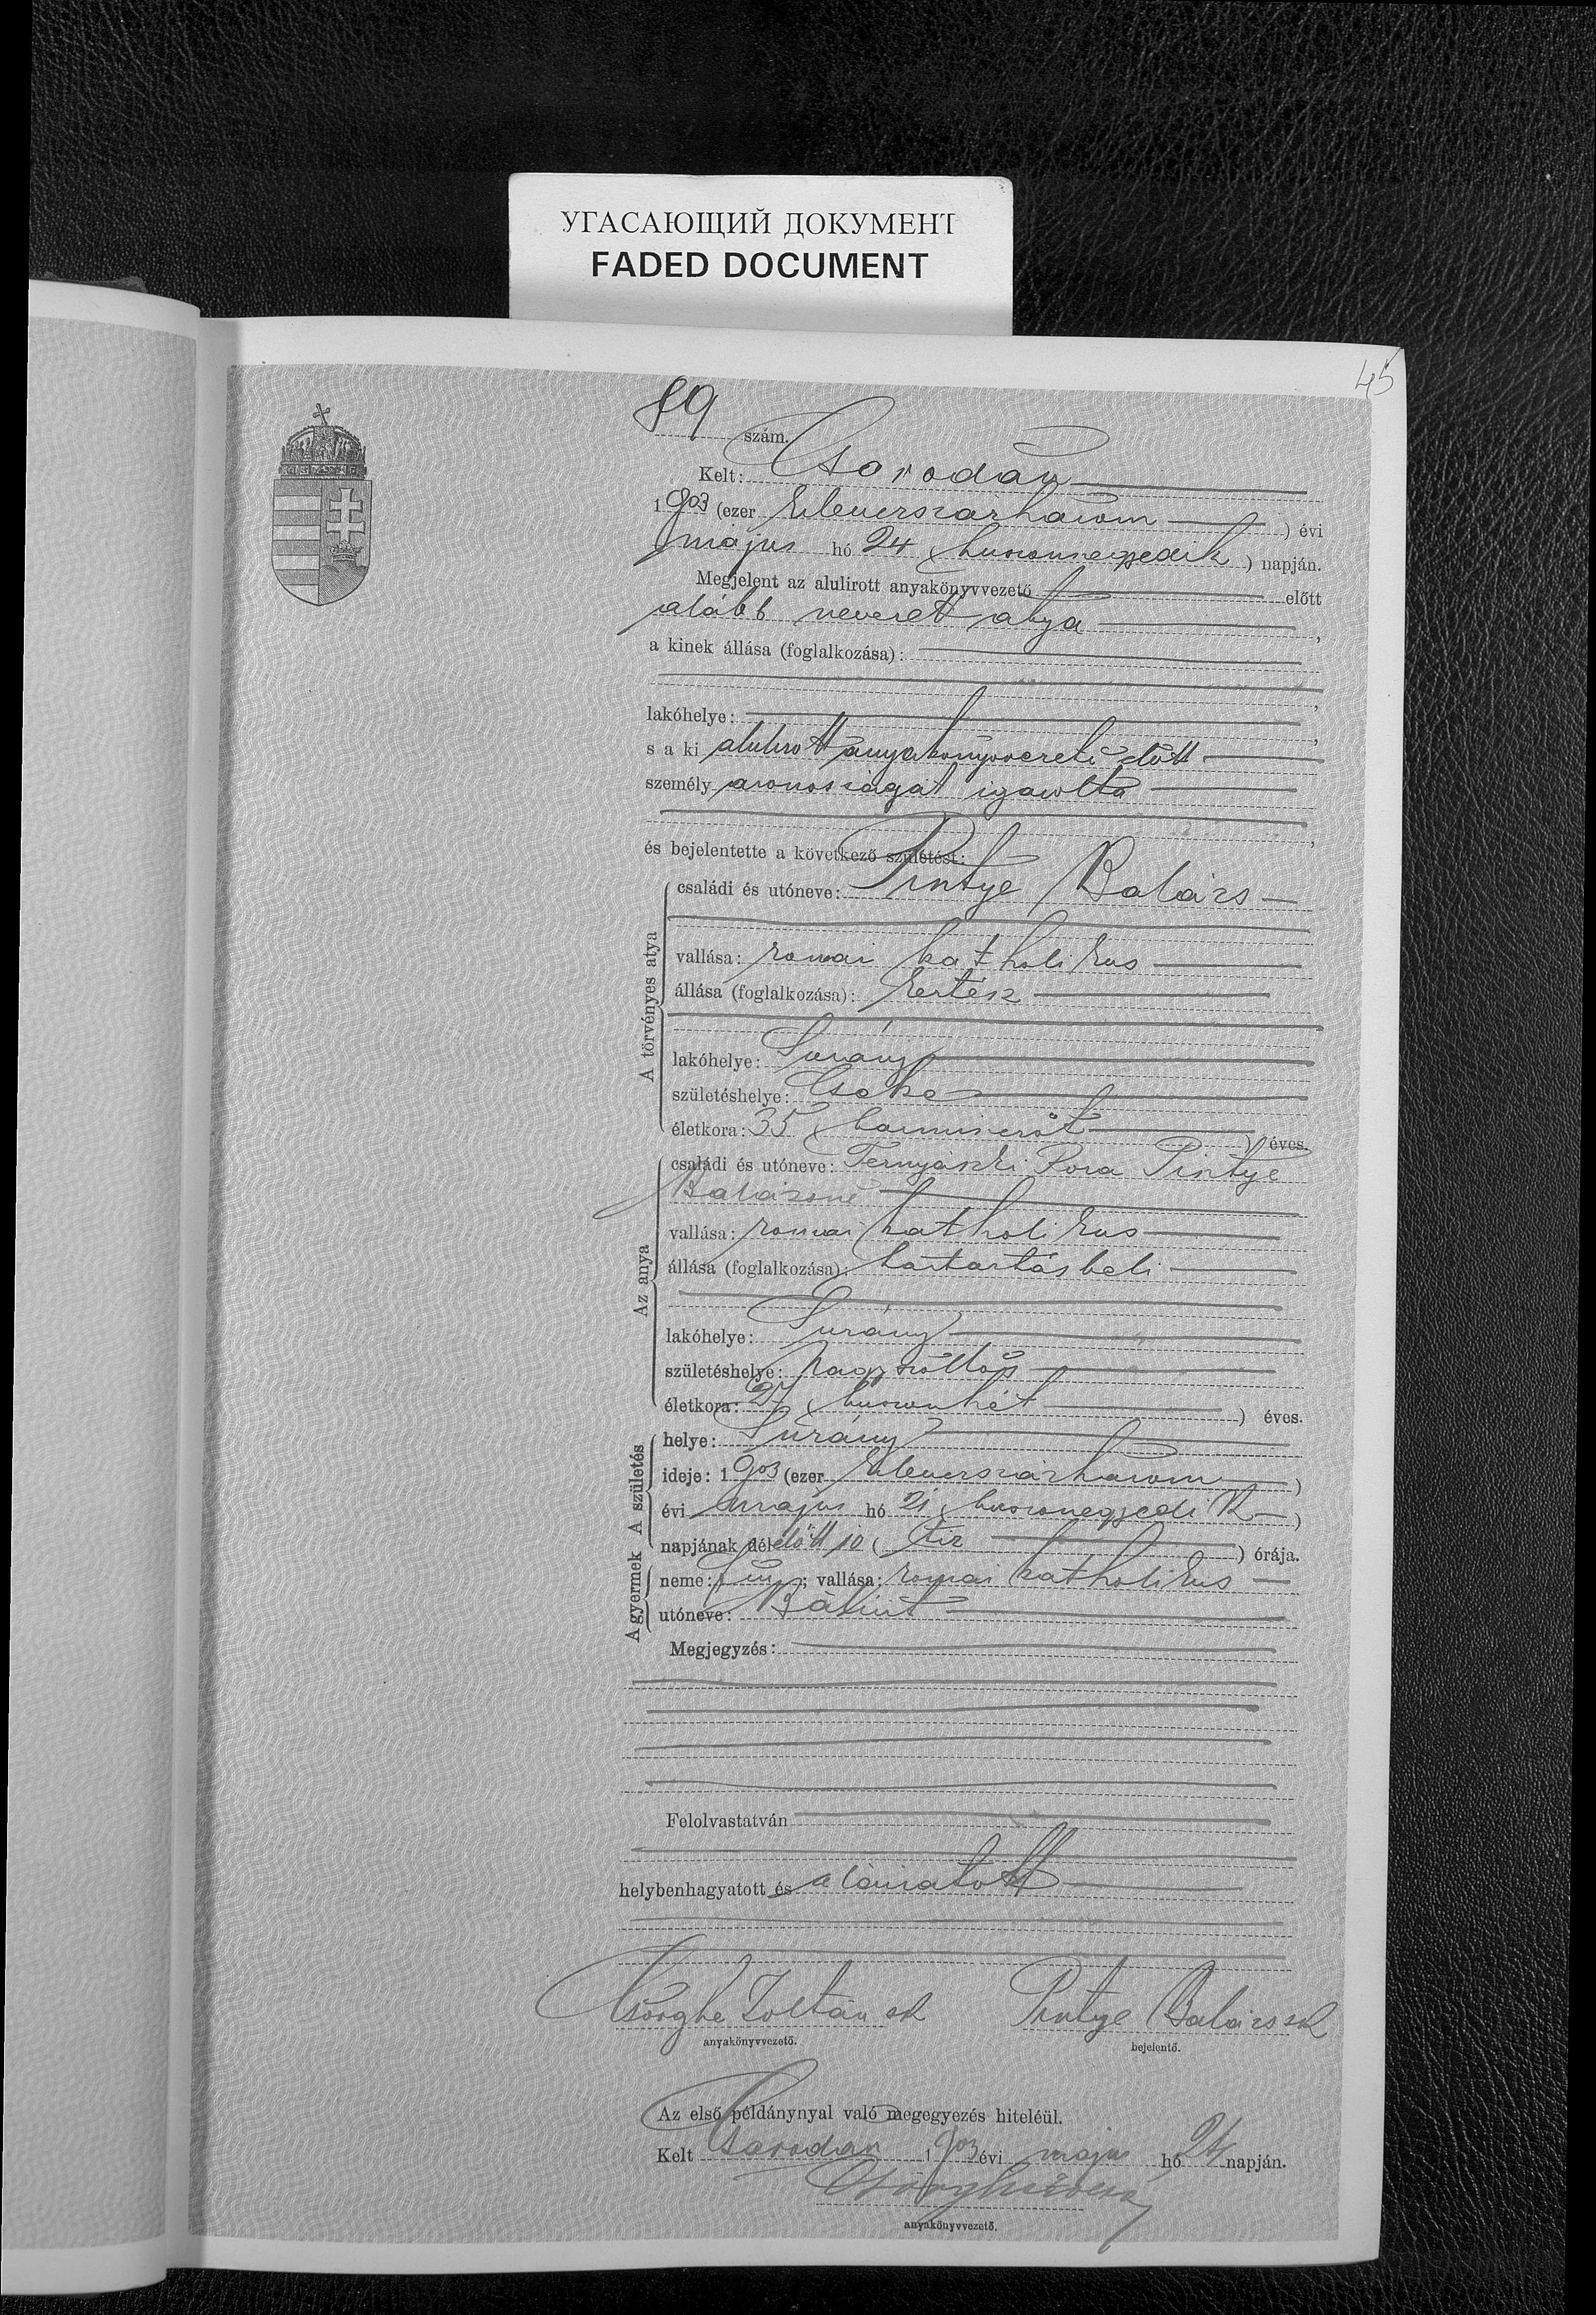 УГАСАЮЩИЙ ДОКУМЕНТ
FADED DOCUMENT
45
89 szám.
Kelt: Csarodán
1903 (ezer kilenczszázhárom ) évi
május hó 24 (huszonnegyedik ) napján.
Megjelent az alulirott anyakönyvvezető előtt
alább nevezett atya ,
a kinek állása (foglalkozása):
lakóhelye: ,
s a ki alulirott anyakönyvvezető előtt
személyazonosságát igazolta
és bejelentette a következő születést:
A törvényes atya
családi és utóneve: Pintye Balázs
vallása: romai katholikus
állása (foglalkozása): kertész
lakóhelye: Surány
születéshelye: Cseke
életkora: 35 (harminczöt ) éves.
Az anya
családi és utóneve: Ternyászki Róza Pintye
Balázsné
vallása: romai katholikus
állása (foglalkozása): háztartásbeli
lakóhelye: Surány
születéshelye: Nagyszőllős
életkora: 27 (huszonhét ) éves.
A születés
helye: Surány
ideje: 1903 (ezer kilenczszázhárom )
évi május hó 21 (huszonegyedik )
napjának délelőtt 10 ( tiz ) órája.
A gyermek
neme: fiu ; vallása: romai katholikus
utóneve: Bálint
Megjegyzés:
Felolvastatván
helybenhagyatott és aláiratott
Csorghe Zoltán sk Pintye Balázs sk
anyakönyvvezető. bejelentő.
Az első példánynyal való megegyezés hiteléül.
Kelt Csarodán 1903 évi május hó 24 napján.
anyakönyvvezető.